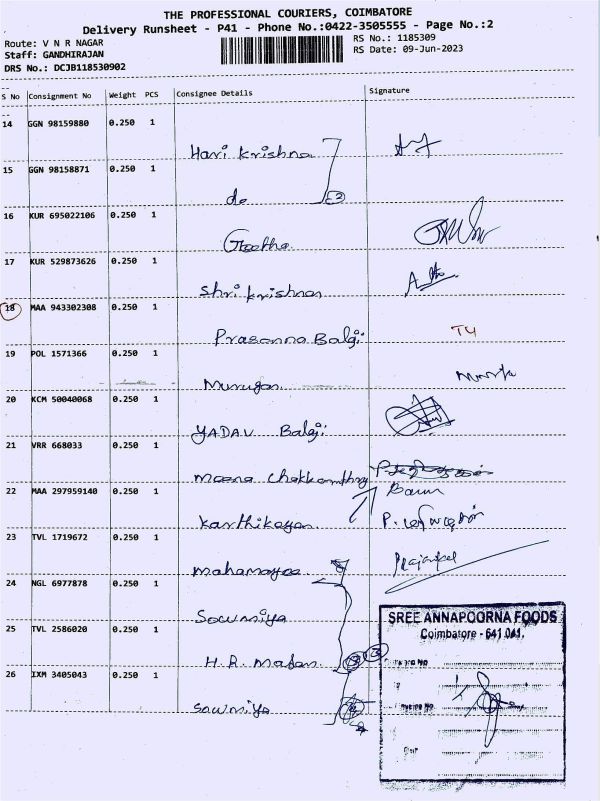 THE PROFESSIONAL COURIERS, COIMBATORE
Delivery Runsheet - P41 - Phone No.:0422-3505555 - Page No.:2
Route: V N R NAGAR
RS No.: 1185309
Staff: GANDHIRAJAN
RS Date: 09-Jun-2023
DRS No.: DCJB118530902
S No Consignment No Weight PCS Consignee Details Signature
14 GGN 98159880 0.250 1
Hari krishna
15 GGN 98158871 0.250 1
do
16 KUR 695022106 0.250 1
Geetha
17 KUR 529873626 0.250 1
Shri krishnan
18 MAA 943302308 0.250 1
Prasanna Balaji
19 POL 1571366 0.250 1
Murugan
20 KCM 50040068 0.250 1
YADAV Balaji
21 VRR 668033 0.250 1
meena
22 MAA 297959140 0.250 1
Karthikeyan
23 TVL 1719672 0.250 1
24 NGL 6977878 0.250 1
Sowmiya
SREE ANNAPOORNA FOODS
25 TVL 2586020 0.250 1
Coimbatore - 641 041.
H.R. Madan
26 IXM 3405043 0.250 1
Sowmiya